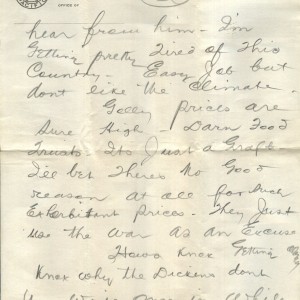 OFFICE OF
hear from him - I'm
Getting pretty Tired of This
Country - Easy Job but
dont like the climate -
Golly Prices are
Sure High - Darn Food
Trusts Its Just a Graft
I'll bet There's no Good
reason at all for such
Exherbitant Prices - They Just
use the War as an Excuse
Hows Knox Getting along
Knox why the Dickens dont
you write once in a while